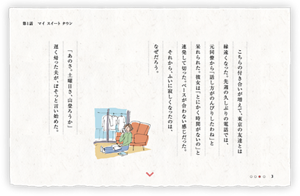 第1話 マイ スイート タウン
こちらの付き合いが増えて、東京の友達とは
縁遠くなった。先週の久しぶりの電話では、
元同僚から「話し方がのんびりしたわね」と
呆れられた。彼女は「とにかく時間がないの」と
急かして切った。ペースが合わない感じだった。
それから、ふいに寂しくなったのは、
なぜだろう。
「あのさ、土曜日さ、山登ろうか」
遅く帰った夫が、ぼそっと言い始めた。
3